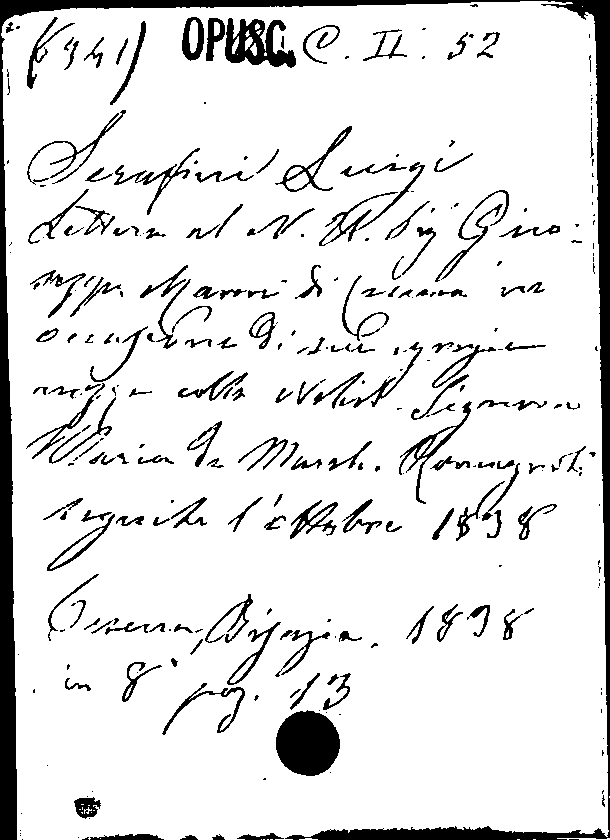 (6441) OPUSC. C. II. 52
Serafini Luigi
Lettera al N. H. Sig Giu-
seppe Marri di Cesena in
occasione di sue egregie
nozze colla Nobil. Signora
Maria de March. Romagnoli
seguite l'ottobre 1838
Cesena, Bisazia. 1838
in 8° pag. 13